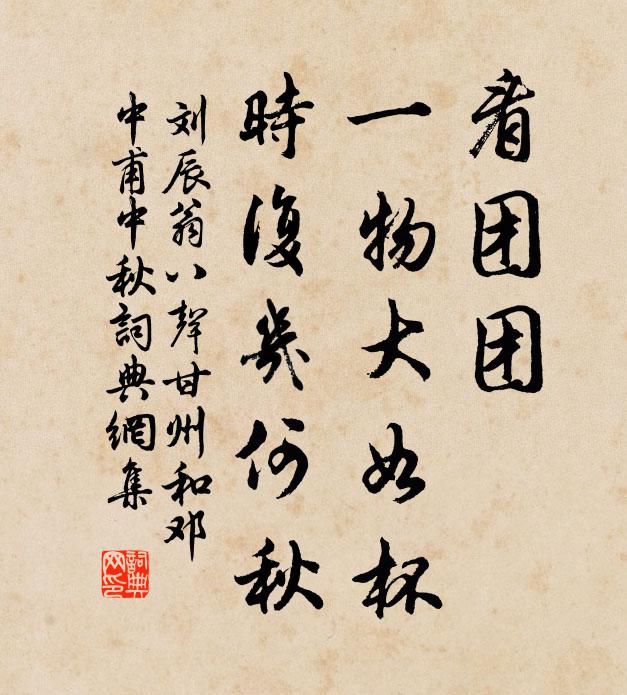 看团团
一物大如杯
時復幾何秋
刘辰翁八聲甘州和邓
中甫中秋詞典網集
詞典网印